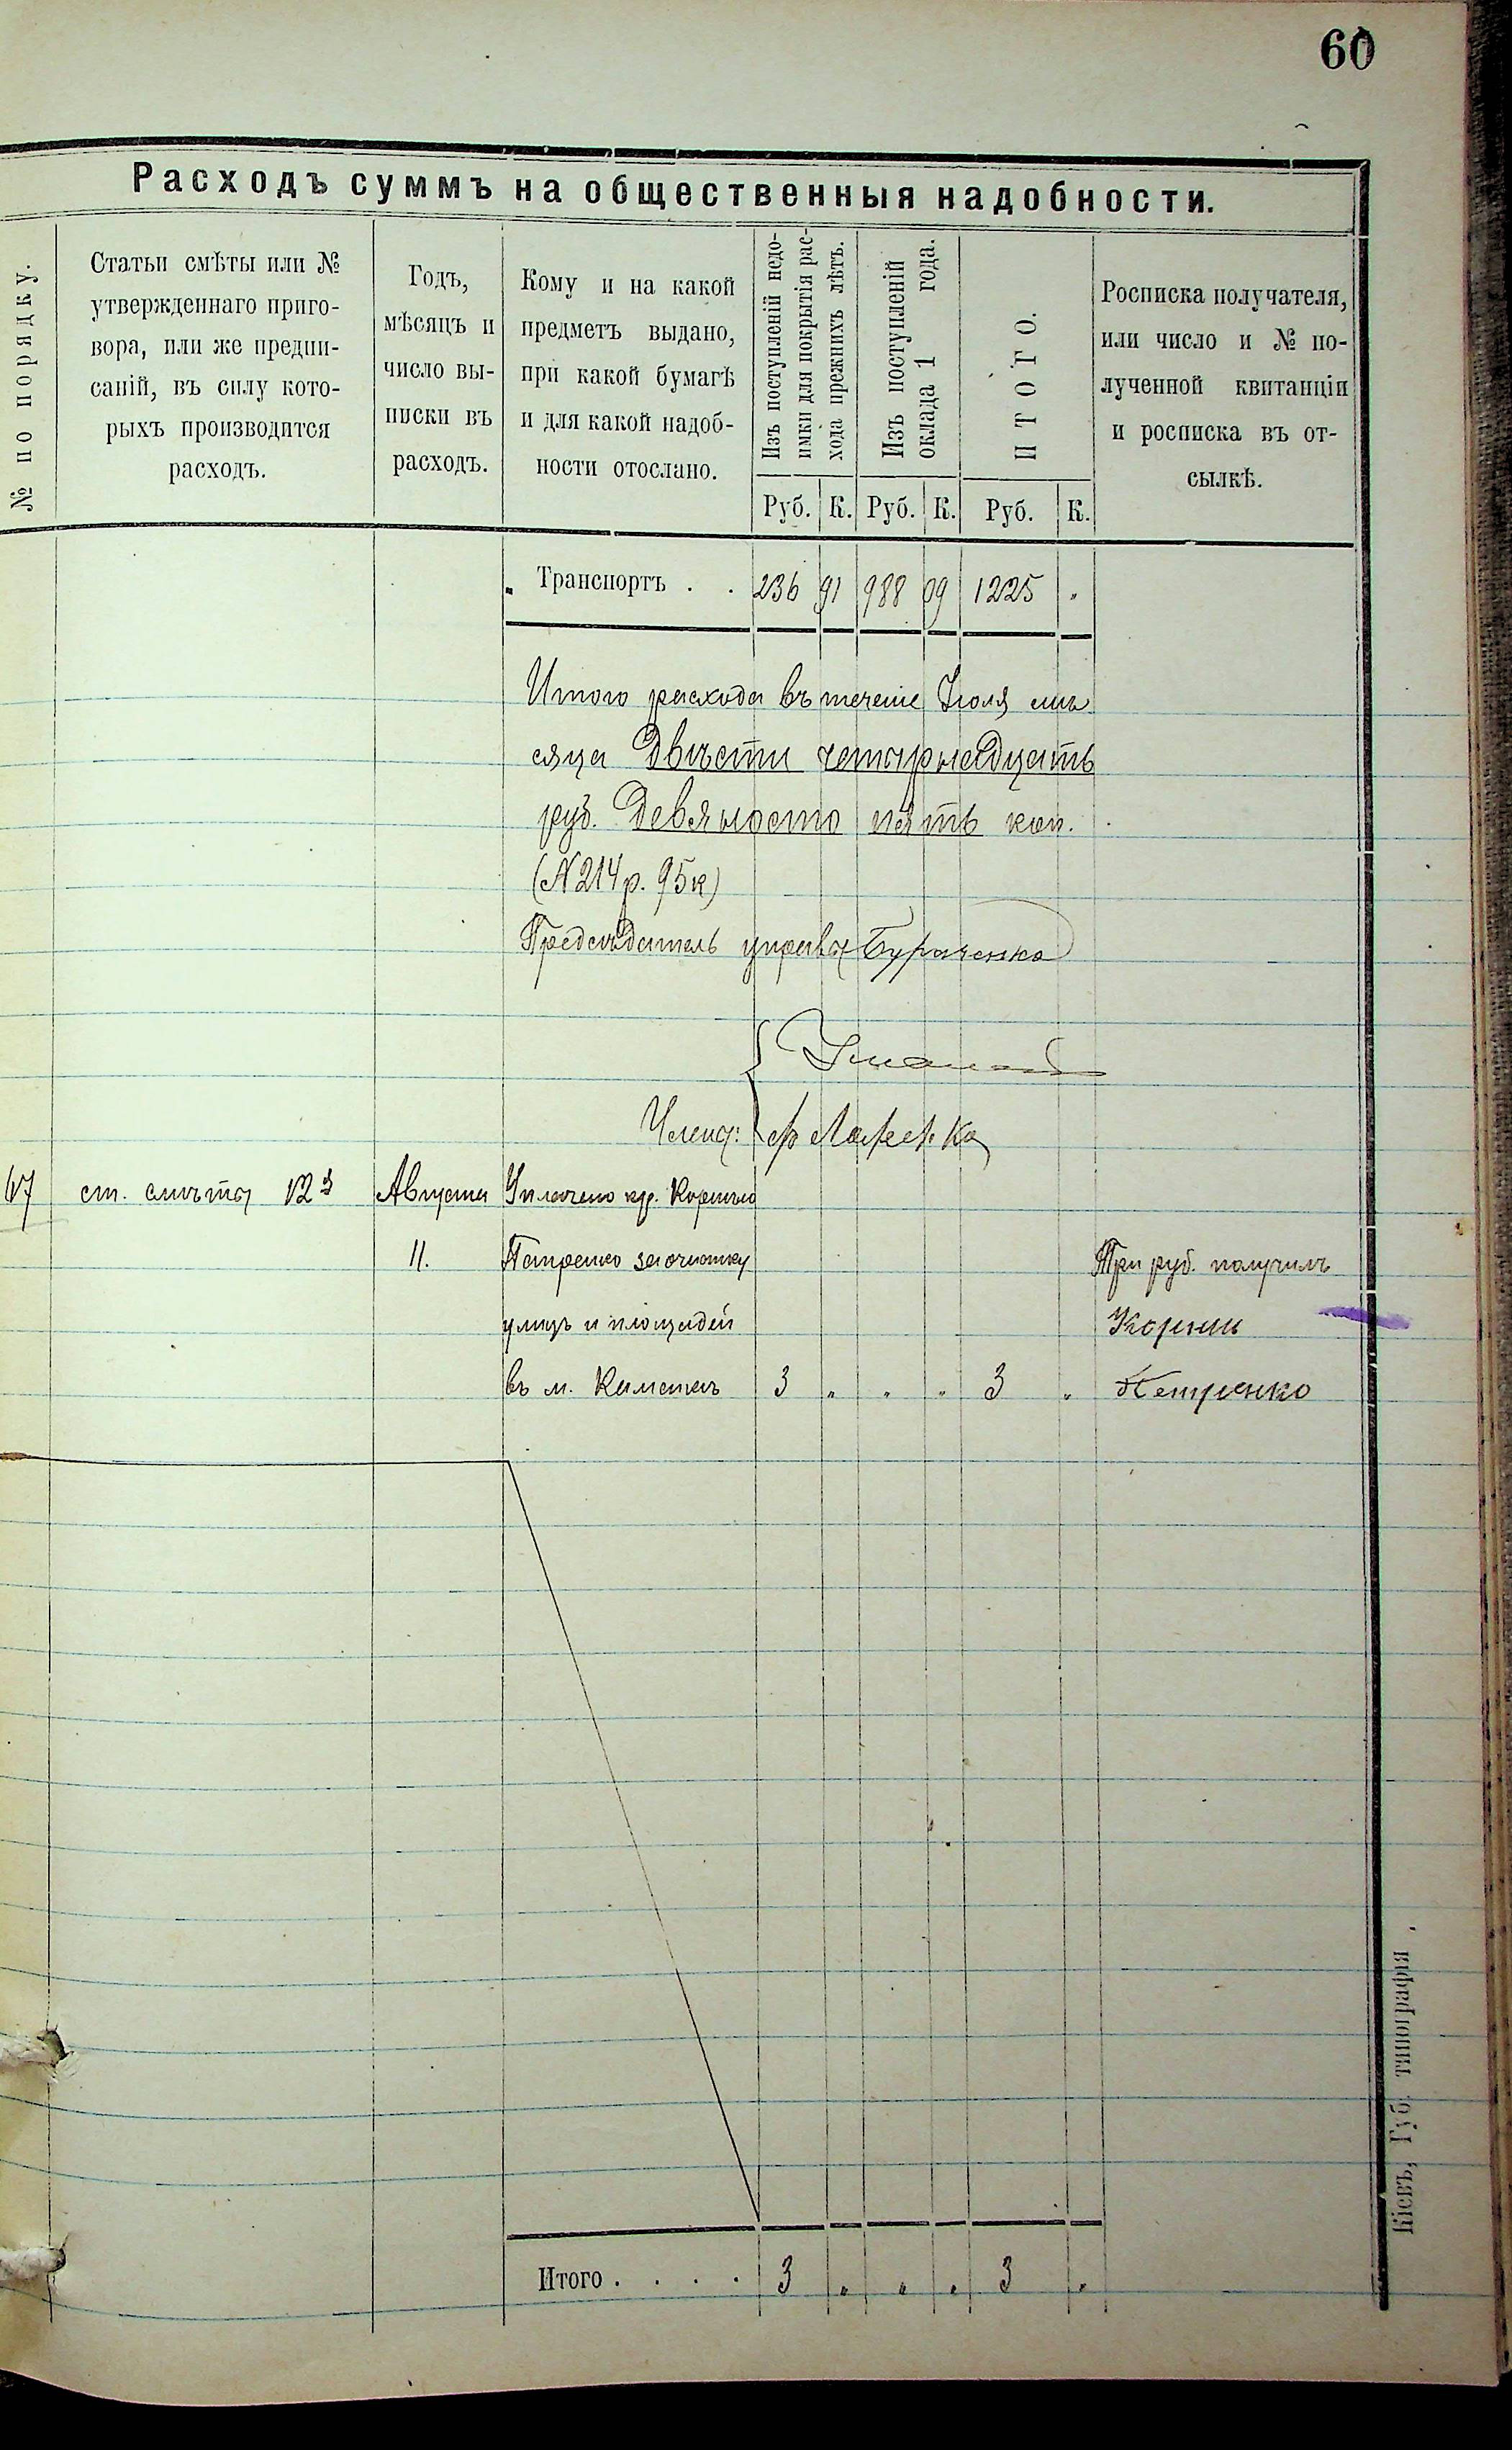 60
Расходъ суммъ на общественныя надобности.
№ по порядку.
Статьи смѣты или №
утвержденнаго приго-
вора, или же предпи-
саній, въ силу кото-
рыхъ производится
расходъ.
Годъ,
мѣсяцъ и
число вы-
писки въ
расходъ.
Кому и на какой
предметъ выдано,
при какой бумагѣ
и для какой надоб-
ности отослано.
Изъ поступленій недо-
имки для покрытія рас-
хода прежнихъ лѣтъ.
Изъ поступленій
оклада 1 года.
ИТОГО.
Росписка получателя,
или число и № по-
лученной квитанціи
и росписка въ от-
сылкѣ.
Руб. К. Руб. К. Руб. К.
Транспортъ . . 236 91 988 09 1225 "
Итого расхода въ течение Июля мѣ
сяца Двѣсти четырнадцать
руб. Девяносто пять коп.
(№ 214 р. 95 к)
Председатель управы Бураченко
Члены:
ст. смѣты 12 Августа Уплачено кр. Корнѣю
11. Петренко за очистку Три руб. получилъ
улицъ и площадей Корнии
въ м. 3 " " " 3 " Петренко
Итого . . . . 3 " " " 3 "
Кіевъ, Губ. типографія